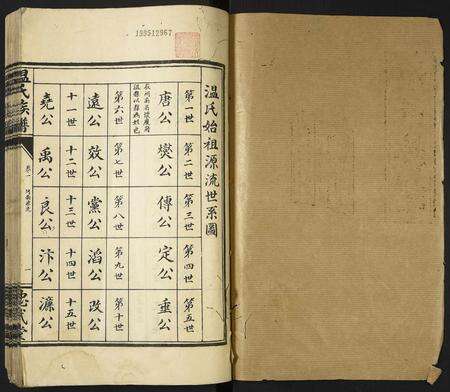 199512967
溫氏始祖源流世系圖
第一世
第二世
第三世
第四世
第五世
唐公
燮公
傳公
定公
垂公
第六世
第七世
第八世
第九世
第十世
遠公
效公
黨公
滔公
政公
十一世
十二世
十三世
十四世
十五世
堯公
禹公
良公
汴公
濂公
溫氏族譜
卷一